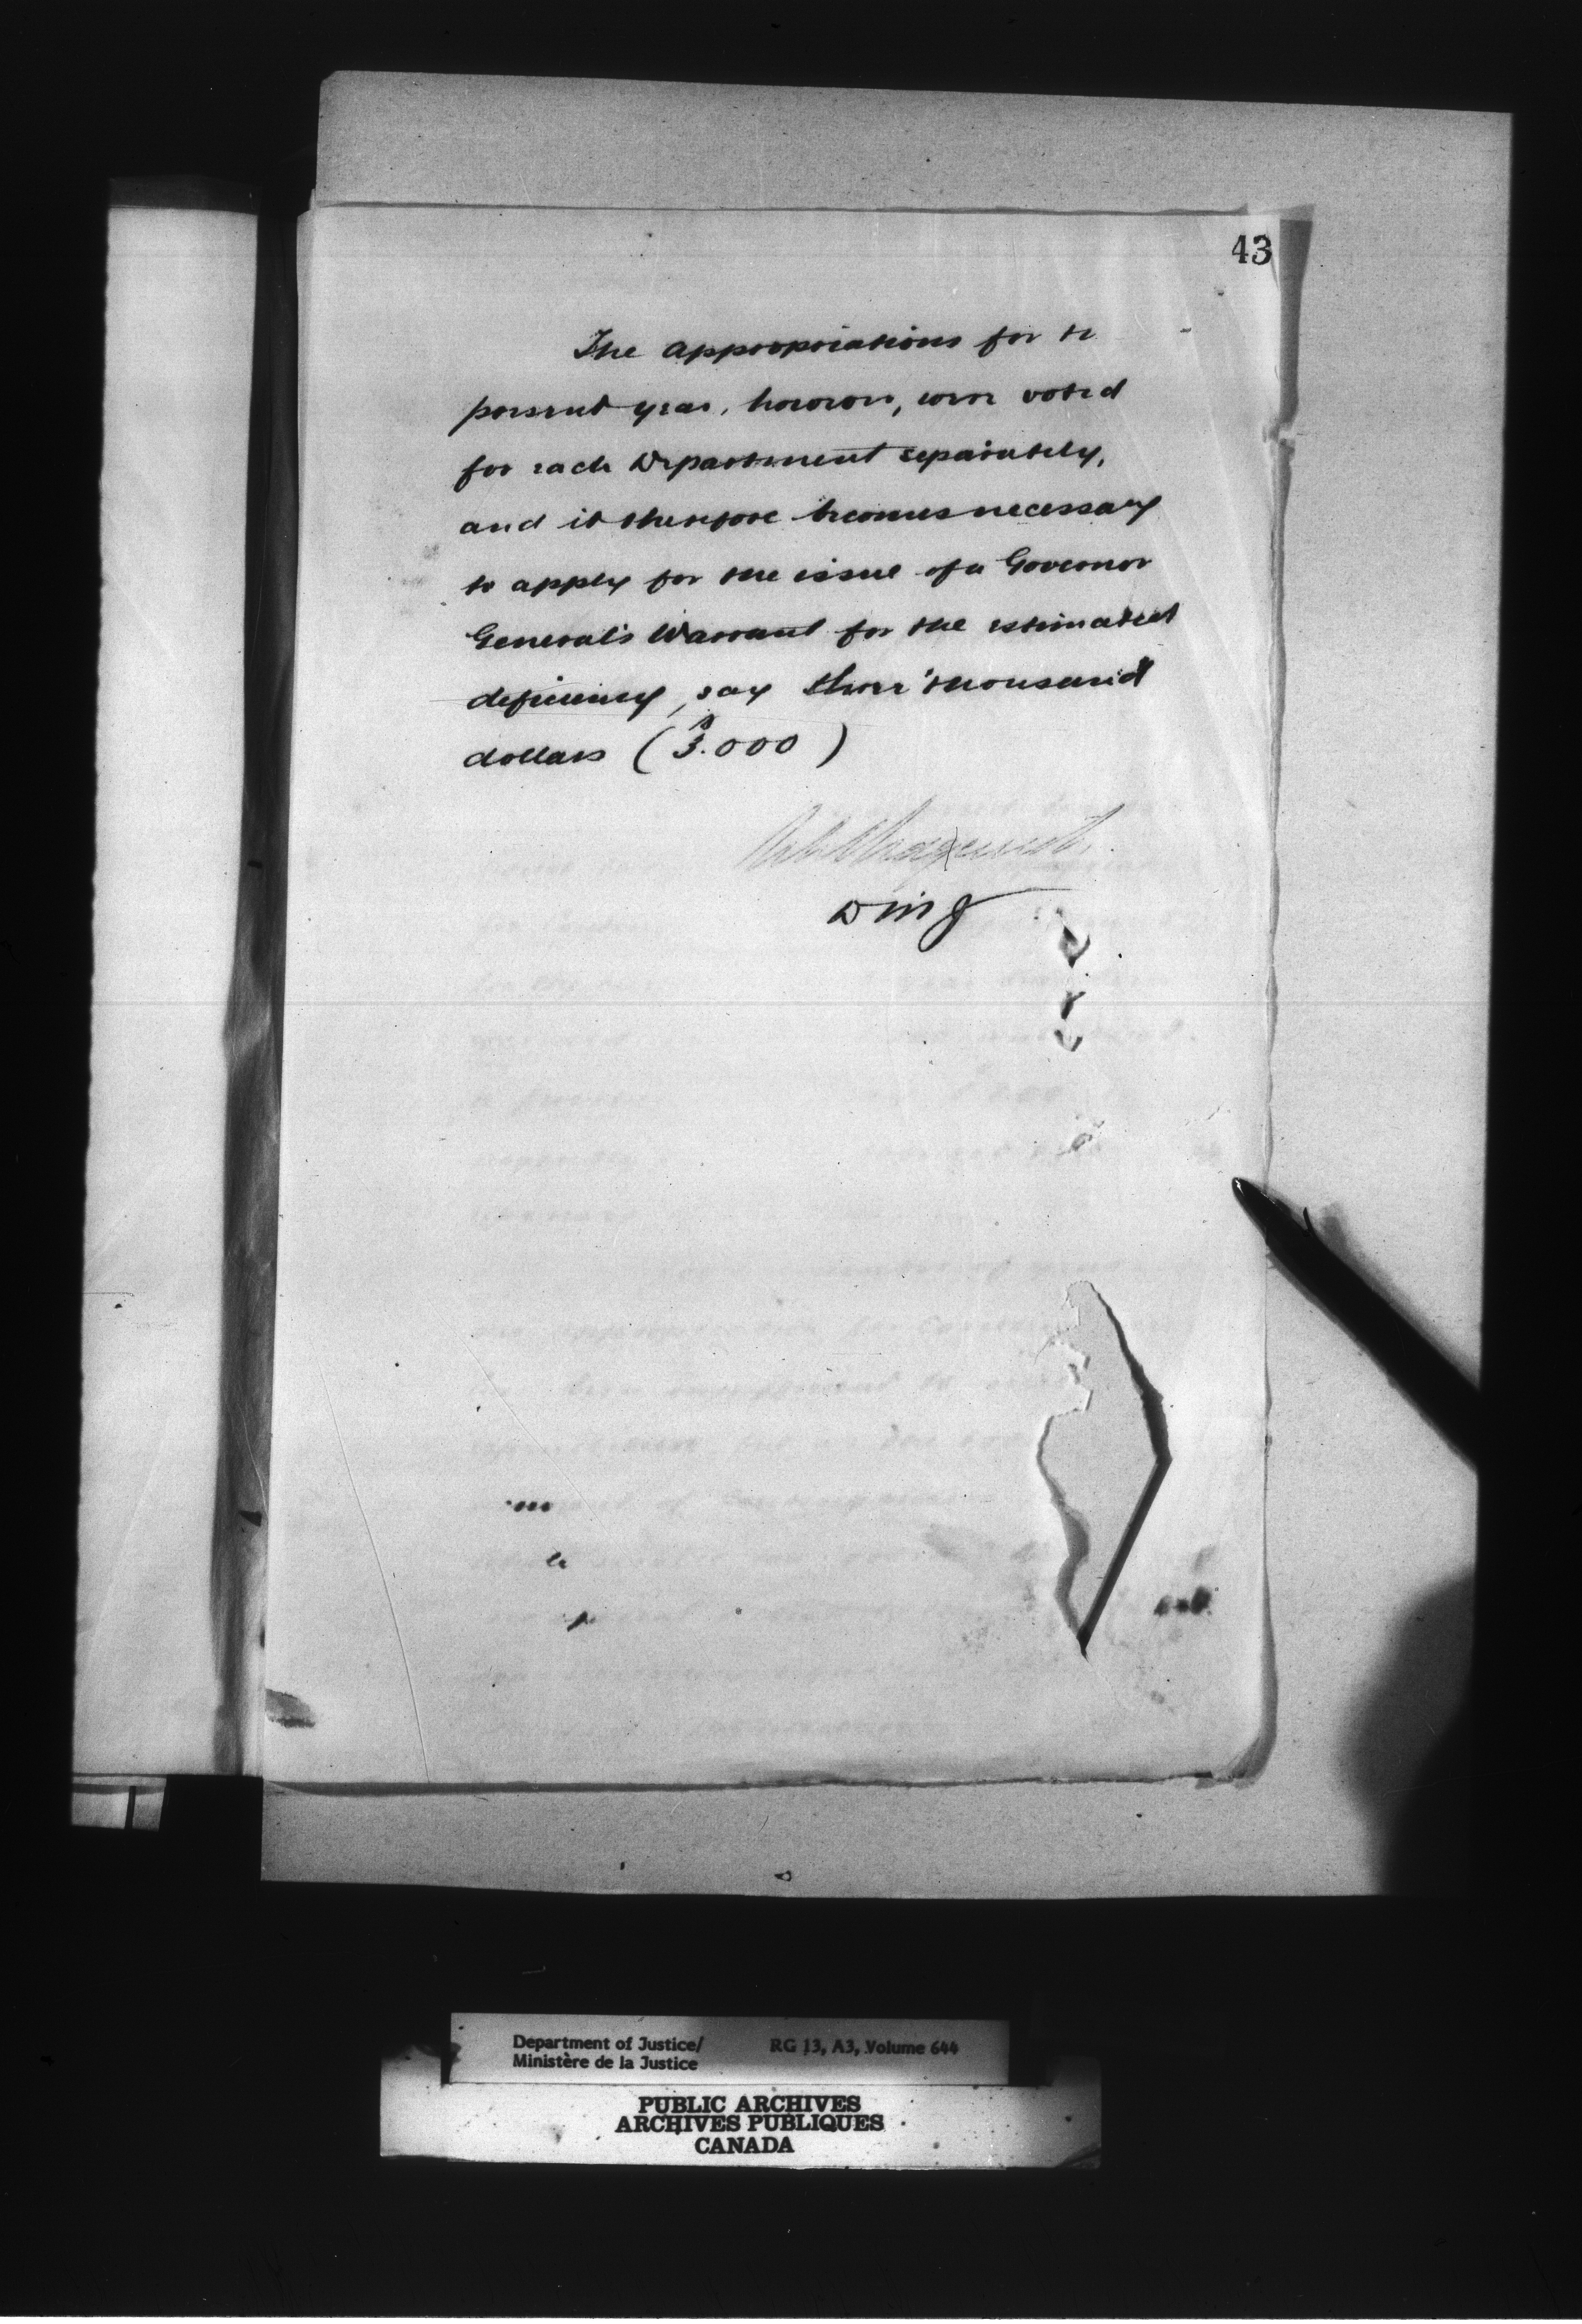 43
The appropriations for the
present year, however, were voted
for each Department separately,
and it therefore becomes necessary
to apply for the issue of a Governor
General's Warrant for the estimated
deficiency, say three thousand
dollars ($3.000)
DMJ
Department of Justice/ RG 13, A3, Volume 644
Ministère de la Justice
PUBLIC ARCHIVES
ARCHIVES PUBLIQUES
CANADA